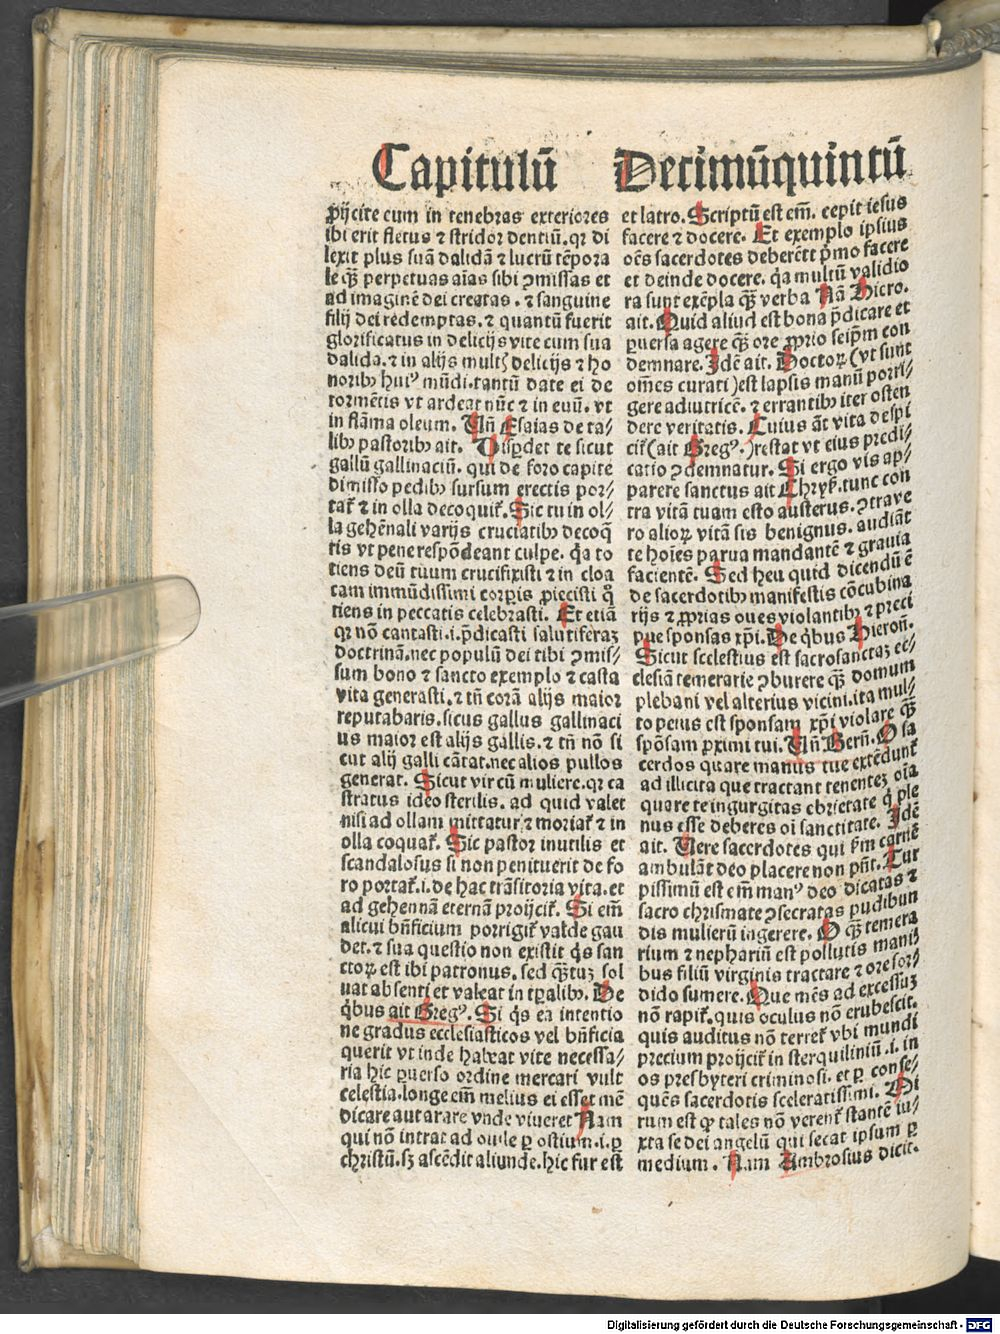 Capitulū Decimūquintū
ꝓijcite eum in tenebras exteriores
ibi erit fletus ⁊ stridor dentiū. qꝛ di
lexit plus suā dalidā ⁊ lucrū tēpora
le q̄ꝫ perpetuas aīas sibi ꝯmissas et
ad imaginē dei creatas. ⁊ sanguine
filij dei redemptas. ⁊ quantū fuerit
glorificatus in delicijs vite cum sua
dalida. ⁊ in alijs mult᷒ delicijs ⁊ ho
noribꝫ huiꝰ mūdi. tantū date ei de
tormētis vt ardeat nūc ⁊ in euū. vt
in flāma oleum. Uñ Esaias de ta⸗
libꝫ pastoribꝫ ait. Disꝑdet te sicut
gallū gallinaciū. qui de foro capite
dimisso pedibꝫ sursum erectis por⸗
tat᷑ ⁊ in olla decoquit᷑. Sic tu in ol⸗
la gehēnali varijs cruciatibꝫ decoq̄
ris vt pene respōdeant culpe. q̇a to
tiens deū tuum crucifixisti ⁊ in cloa
cam immūdissimi corꝑis ꝓiecisti q̊
tiens in peccatis celebrasti. Et etiā
qꝛ nō cantasti. i. p̄dicasti salutiferaꝫ
doctrinā. nec populū dei tibi ꝯmis⸗
sum bono ⁊ sancto exemplo ⁊ casta
vita generasti. ⁊ tn̄ corā alijs maior
reputabaris. sicus gallus gallinaci
us maior est alijs gallis. ⁊ tn̄ nō si
cut alij galli cātat. nec alios pullos
generat. Sicut vir cū muliere. qꝛ ca
stratus ideo sterilis. ad quid valet
nisi ad ollam mittatur ⁊ moriat᷑ ⁊ in
olla coquat᷑. Sic pastor inutilis et
scandalosus si non penituerit de fo
ro portat᷑. i. de hac trāsitoria vita. et
ad gehennā eternā proijcit᷑. Si em̄
alicui bn̄ficium porrigit᷑ valde gau
det. ⁊ sua questio non existit q̇s san
ctoꝝ est ibi patronus. sed q̄ꝫtuꝫ sol
uat absenti et valeat in tꝑalibꝫ. De
q̇bus ait Gregꝰ. Si q̇s ea intentio
ne gradus ecclesiasticos vel bn̄ficia
querit vt inde habeat vite necessa⸗
ria hic ꝑuerso ordine mercari vult
celestia. longe em̄ melius ei esset mē
dicare aut arare vnde viueret Nam
qui nō intrat ad ouile ꝑ ostium. i. ꝑ
christū. sꝫ ascēdit aliunde. hic fur est
et latro. Scriptū est em̄. cepit iesus
facere ⁊ docere. Et exemplo ipsius
oēs sacerdotes deberēt p̄mo facere
et deinde docere. q̇a multū validio
ra sunt exēpla q̄ꝫ verba Nā Hiero.
ait. Quid aliud est bona p̄dicare et
ꝑuersa agere q̄ꝫ ore ꝓprio seip̄m con
demnare. Idē ait. Doctoꝝ (vt sunt
om̄es curati) est lapsis manū porri⸗
gere adiutricē. ⁊ errantibꝫ iter osten
dere veritatis. Cuius āt vita despi
cit᷑ (ait Gregꝰ.) restat vt eius predi⸗
catio ꝯdemnatur. Si ergo vis ap⸗
parere sanctus ait Chryß. tunc con
tra vitā tuam esto austerus. ꝯtrave
ro alioꝝ vitā sis benignus. audiāt
te hoīes parua mandantē ⁊ grauia
facientē. Sed heu quid dicendū ē
de sacerdotibꝫ manifestis cōcubina
rijs ⁊ ꝓprias oues violantibꝫ ⁊ preci
pue sponsas xp̄i. De q̇bus Hieroñ.
Sicut scelestius est sacrosanctaꝫ ec⸗
clesiā temerarie ꝯburere q̄ꝫ domum
plebani vel alterius vicini. ita mul⸗
to peius est sponsam xp̄i violare q̄ꝫ
spōsam ꝓximi tui. Uñ Berñ. O sa
cerdos quare manus tue extēdunt᷑
ad illicita que tractant tenenteꝫ oīa
quare te ingurgitas ebrietate q̇ ple
nus esse deberes oī sanctitate. Idē
ait. Uere sacerdotes qui ẜm carnē
ambulāt deo placere non pn̄t. Tur
pissimū est em̄ manꝰ deo dicatas ⁊
sacro chrismate ꝯsecratas pudibun
dis mulierū ingerere. O q̄ꝫ temera
rium ⁊ nephariū est pollutis mani⸗
bus filiū virginis tractare ⁊ ore sor⸗
dido sumere. Que mēs ad excessuꝫ
nō rapit᷑. quis oculus nō erubescit.
quis auditus nō terret᷑ vbi mundi
precium proijcit᷑ in sterquiliniū. i. in
os presbyteri criminosi. et ꝑ conse⸗
quēs sacerdotis sceleratissimi. Mi
rum est ꝙ tales nō verent᷑ stantē iu⸗
xta se dei angelū qui secat ipsum ꝑ
medium. Nam Ambrosius dicit.
Digitalisierung gefördert durch die Deutsche Forschungsgemeinschaft - DFG